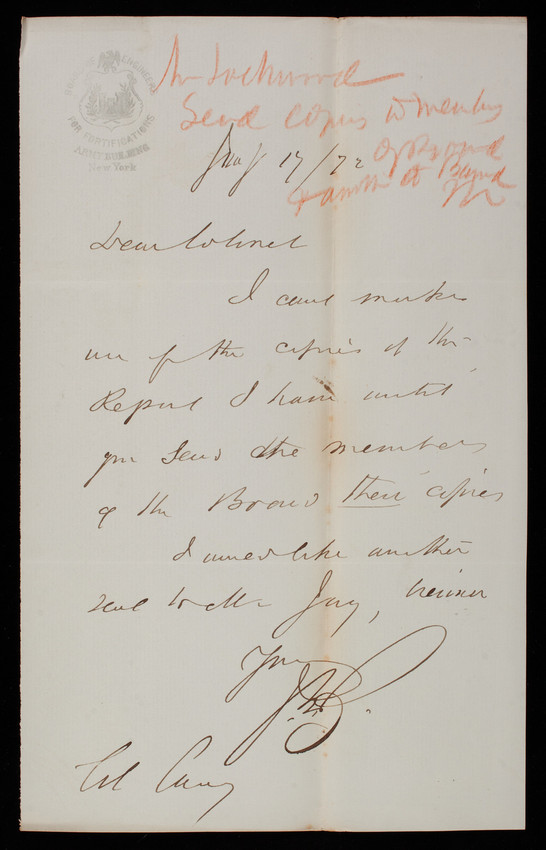 BOARD OF ENGINEERS
FOR FORTIFICATIONS
ARMY BUILDING
New York
Mr Lockwood
Send copies to members
of Board
May 17/72
Dear Colonel
I cant make
use of the copies of the
Report I have until
you send the members
of the Board their copies
I would like another
sent to Mr Jay,
Yrs
J.G.B.
Col Casey